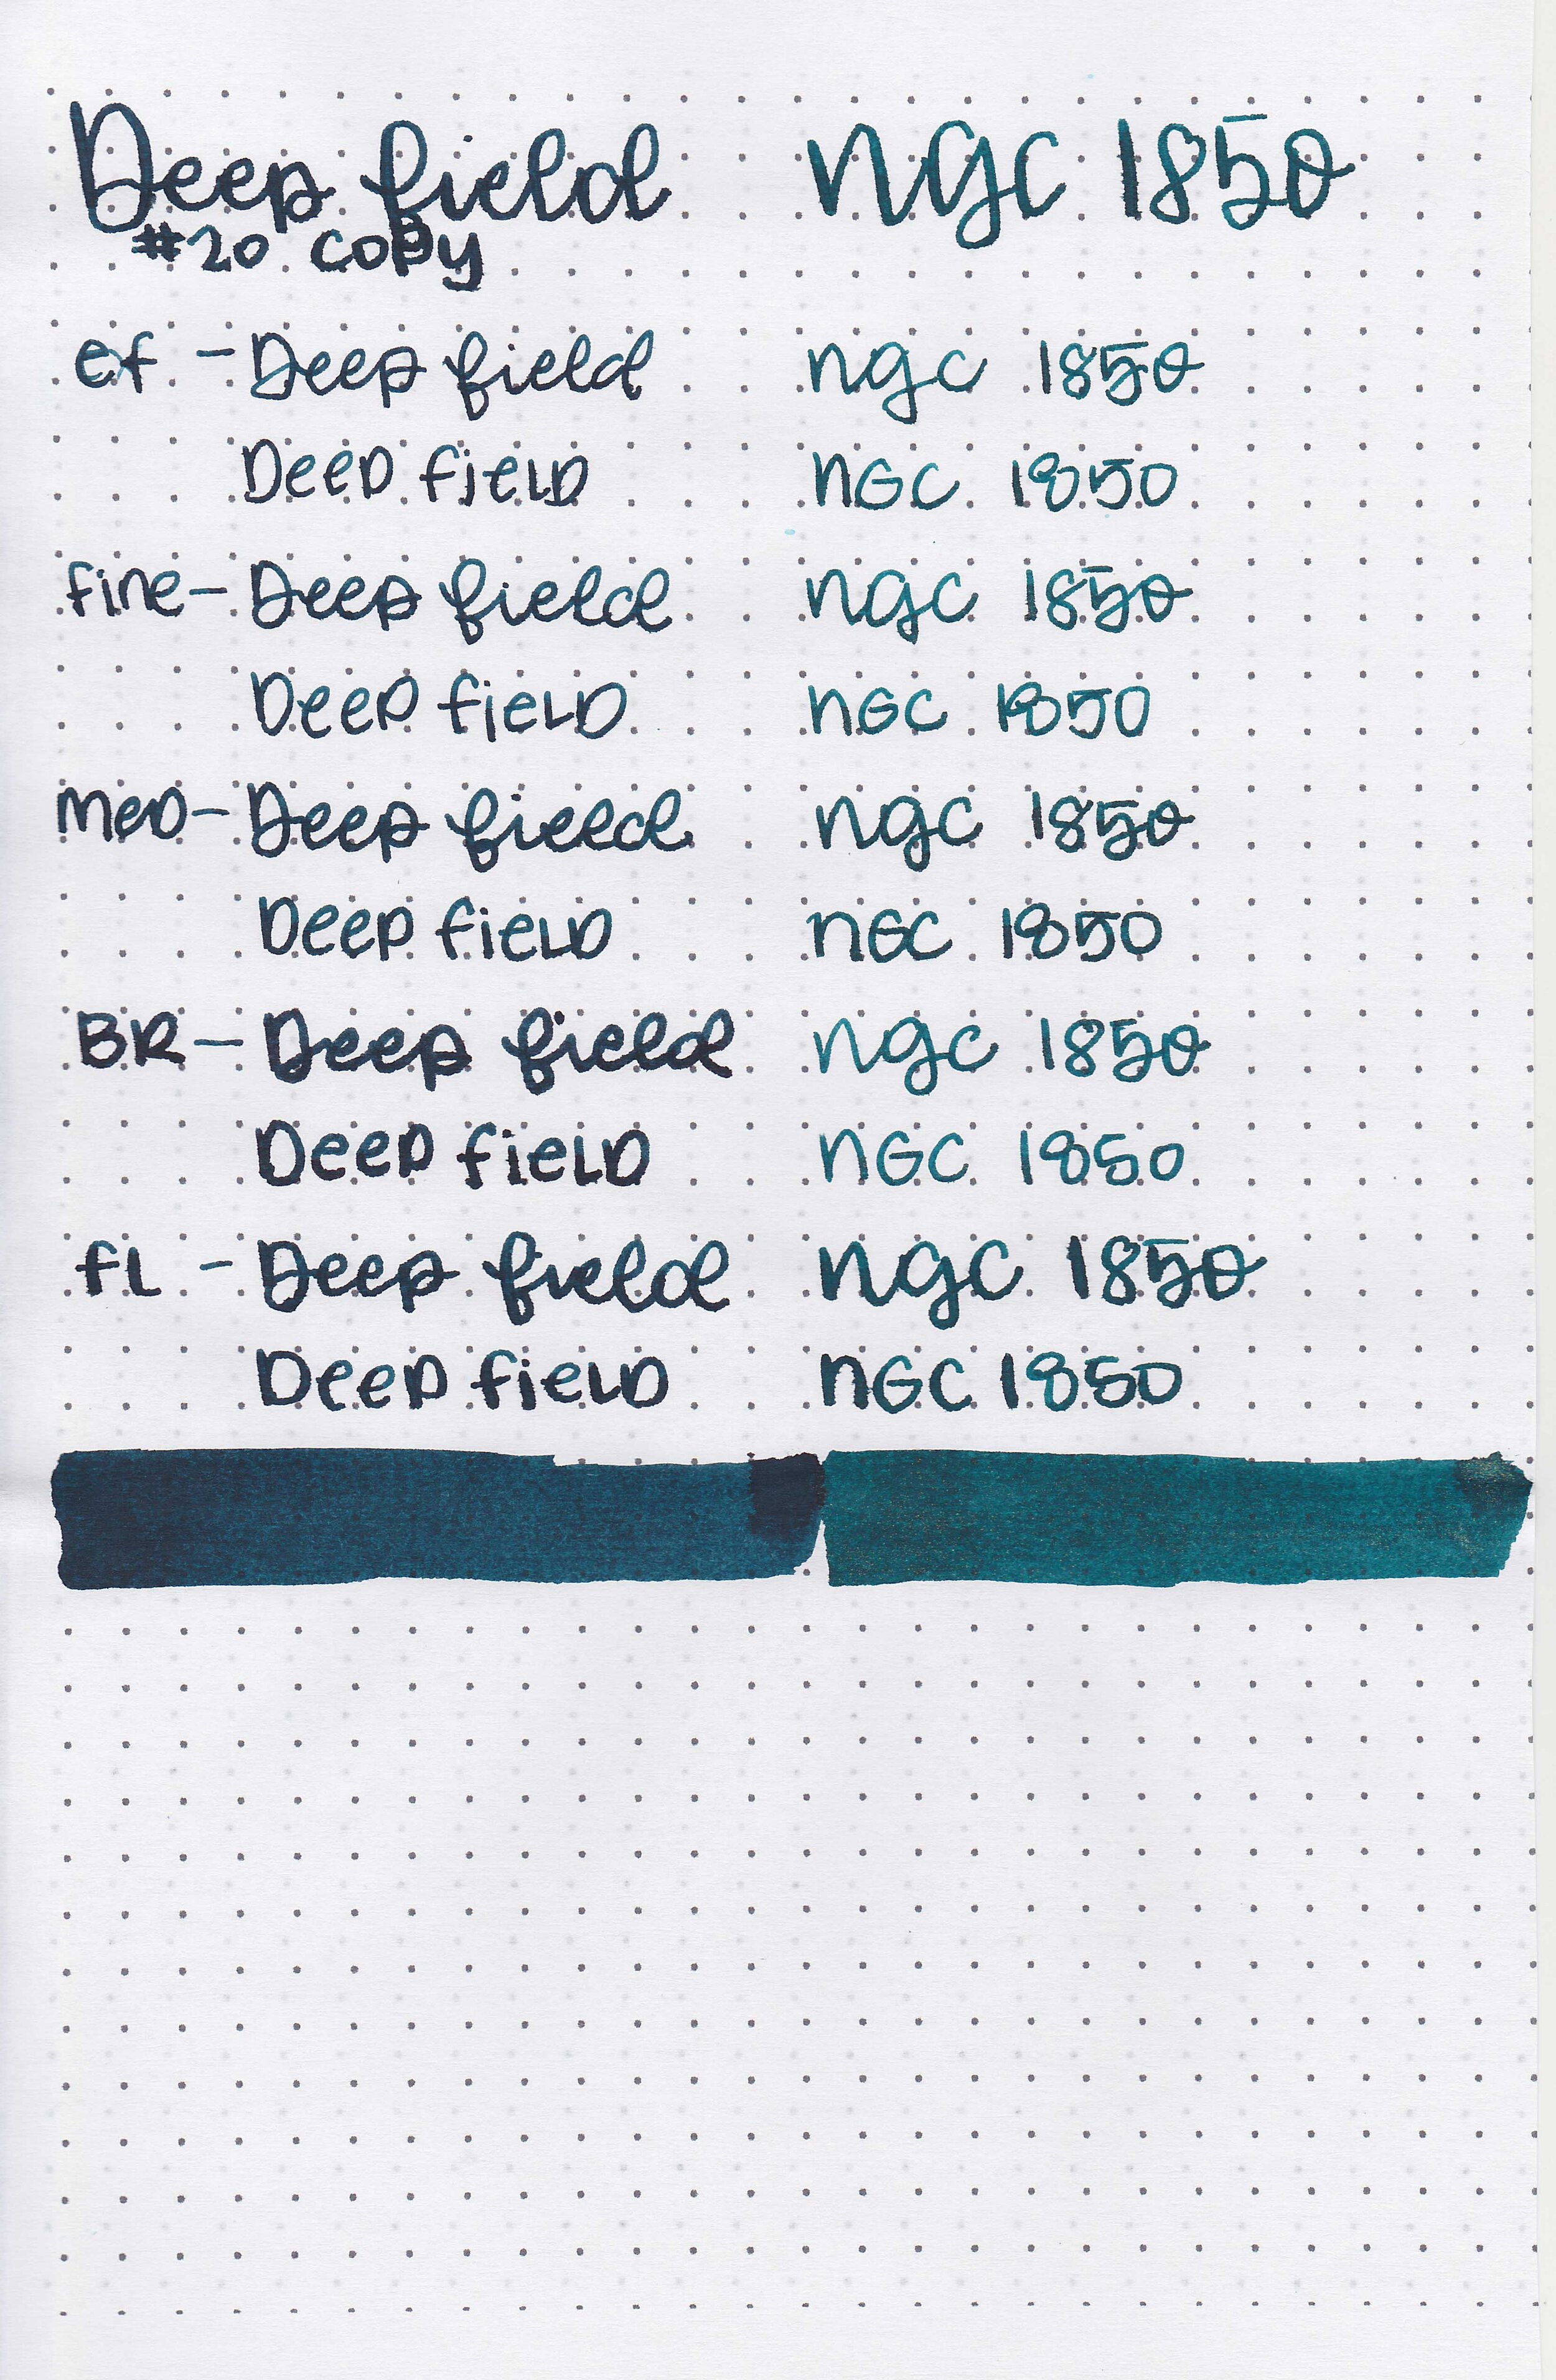 Deep field NGC 1850
#20 copy
ef - Deep field ngc 1850
Deep field NGC 1850
fine - Deep field ngc 1850
Deep field NGC 1850
Med - Deep field ngc 1850
Deep field NGC 1850
BR - Deep field ngc 1850
Deep field NGC 1850
fL - Deep field ngc 1850
Deep field NGC 1850